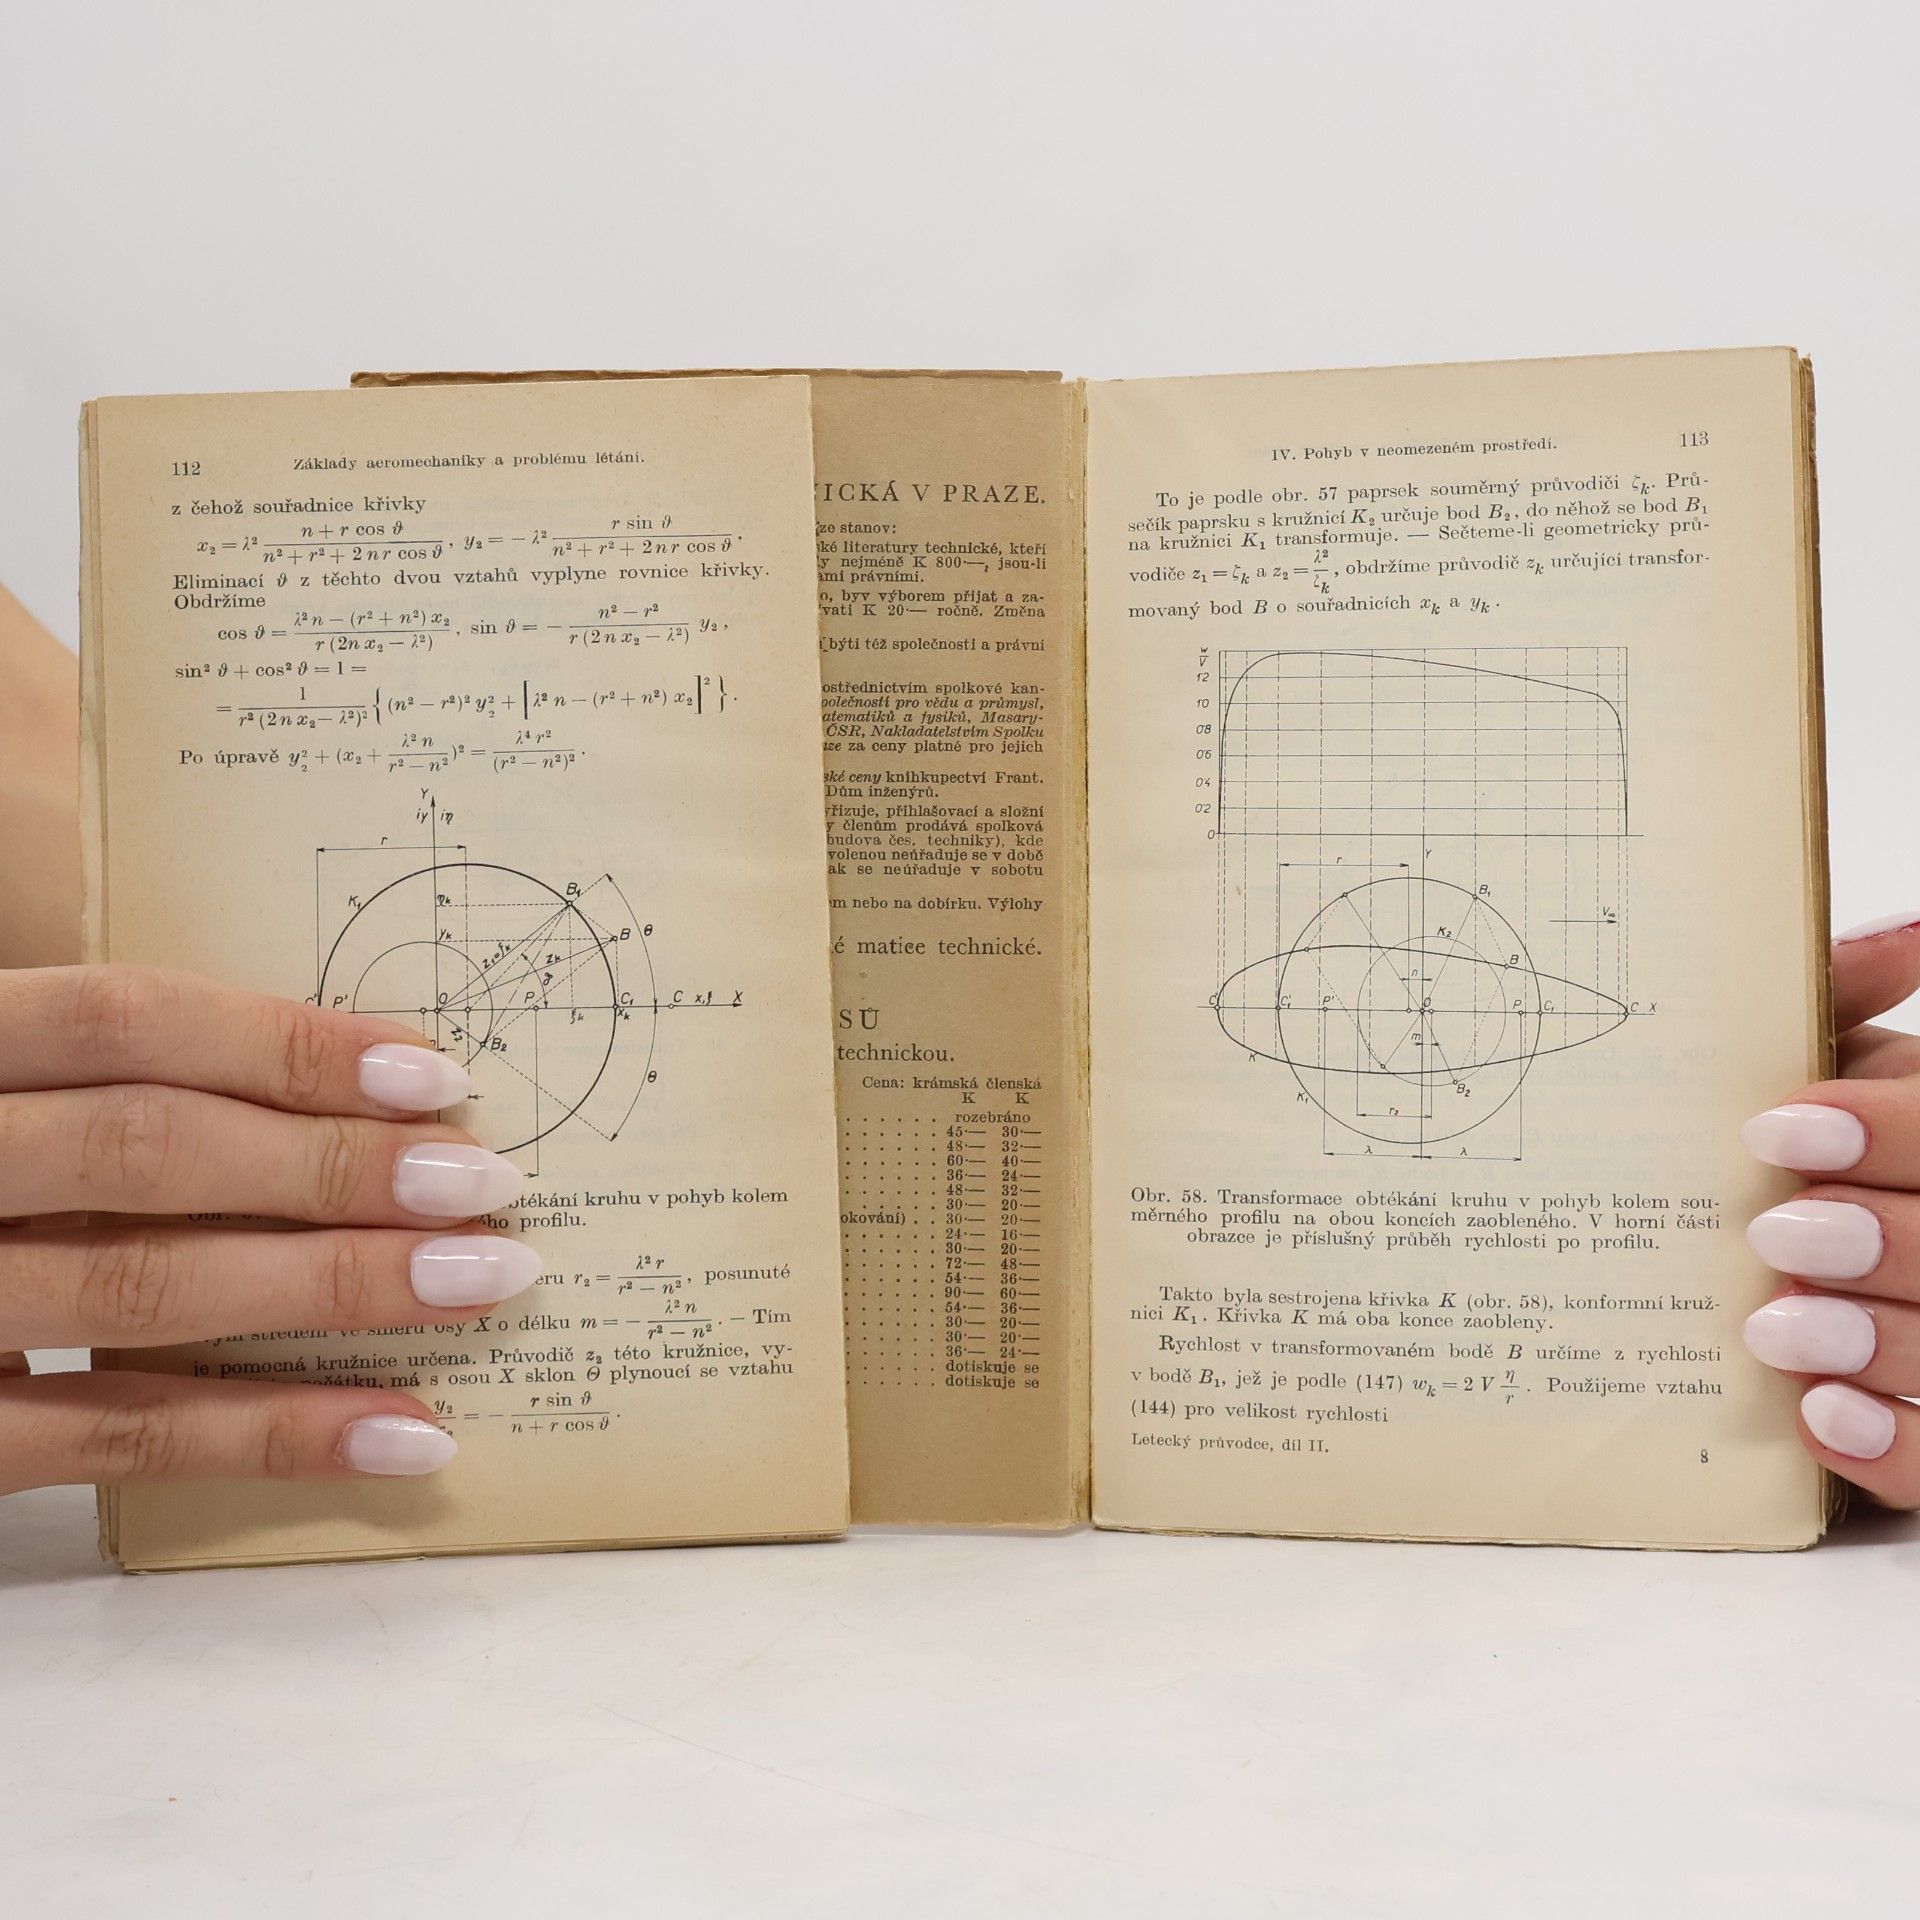 112 Základy aeromechaniky a problému létání.
z čehož souřadnice křivky
x₂ = λ² (n + r cos ϑ)/(n² + r² + 2 n r cos ϑ), y₂ = − λ² (r sin ϑ)/(n² + r² + 2 n r cos ϑ).
Eliminací ϑ z těchto dvou vztahů vyplyne rovnice křivky.
Obdržíme
cos ϑ = (λ² n − (r² + n²) x₂)/(r (2n x₂ − λ²)), sin ϑ = − (n² − r²)/(r (2 n x₂ − λ²)) y₂,
sin² ϑ + cos² ϑ = 1 =
= 1/(r² (2 n x₂ − λ²)²) { (n² − r²)² y₂² + [λ² n − (r² + n²) x₂]² }.
Po úpravě y₂² + (x₂ + (λ² n)/(r² − n²))² = (λ⁴ r²)/(r² − n²)².
Y
iy iη
r
K₁
B₁
ηk
yk
B
Θ
z₁=ζk
zk
ϑ
C' P' O P ξk C₁ xk C x,ξ X
z₂
B₂
Θ
obtékání kruhu v pohyb kolem
profilu.
r₂ = (λ² r)/(r² − n²), posunuté
ve směru osy X o délku m = − (λ² n)/(r² − n²). — Tím
je pomocná kružnice určena. Průvodič z₂ této kružnice, vy-
počátku, má s osou X sklon Θ plynoucí se vztahu
y₂ = − (r sin ϑ)/(n + r cos ϑ).
ICKÁ V PRAZE.
ze stanov:
ké literatury technické, kteří
nejméně K 800·—, jsou-li
ami právními.
o, byv výborem přijat a za-
vati K 20·— ročně. Změna
býti též společnosti a právní
ostřednictvím spolkové kan-
polečností pro vědu a průmysl,
atematiků a fysiků, Masary-
ČSR, Nakladatelstvím Spolku
ze za ceny platné pro jejich
ské ceny knihkupectví Frant.
Dům inženýrů.
yřizuje, přihlašovací a složní
y členům prodává spolková
budova čes. techniky), kde
volenou neúřaduje se v době
ak se neúřaduje v sobotu
m nebo na dobírku. Výlohy
é matice technické.
SŮ
technickou.
Cena: krámská členská
K K
. . . . . . rozebráno
. . . . . . 45·— 30·—
. . . . . . 48·— 32·—
. . . . . . 60·— 40·—
. . . . . . 36·— 24·—
. . . . . . 48·— 32·—
. . . . . . 30·— 20·—
okování) . . 30·— 20·—
. . . . . . 24·— 16·—
. . . . . . 30·— 20·—
. . . . . . 72·— 48·—
. . . . . . 54·— 36·—
. . . . . . 90·— 60·—
. . . . . . 54·— 36·—
. . . . . . 30·— 20·—
. . . . . . 30·— 20·—
. . . . . . 36·— 24·—
. . . . . . dotiskuje se
. . . . . . dotiskuje se
IV. Pohyb v neomezeném prostředí. 113
To je podle obr. 57 paprsek souměrný průvodiči ζk. Prů-
sečík paprsku s kružnicí K₂ určuje bod B₂, do něhož se bod B₁
na kružnici K₁ transformuje. — Sečteme-li geometricky prů-
vodiče z₁ = ζk a z₂ = λ²/ζk, obdržíme průvodič zk určující transfor-
movaný bod B o souřadnicích xk a yk.
w/V
1'2
1'0
0'8
0'6
0'4
0'2
0
Y
r
B₁
V∞
K₂
B
n
C' C₁' P' O P C₁ C X
m
K
B₂
K₁
r₂
λ λ
Obr. 58. Transformace obtékání kruhu v pohyb kolem sou-
měrného profilu na obou koncích zaobleného. V horní části
obrazce je příslušný průběh rychlosti po profilu.
Takto byla sestrojena křivka K (obr. 58), konformní kruž-
nici K₁. Křivka K má oba konce zaobleny.
Rychlost v transformovaném bodě B určíme z rychlosti
v bodě B₁, jež je podle (147) wk = 2 V η/r. Použijeme vztahu
(144) pro velikost rychlosti
Letecký průvodce, díl II.
8